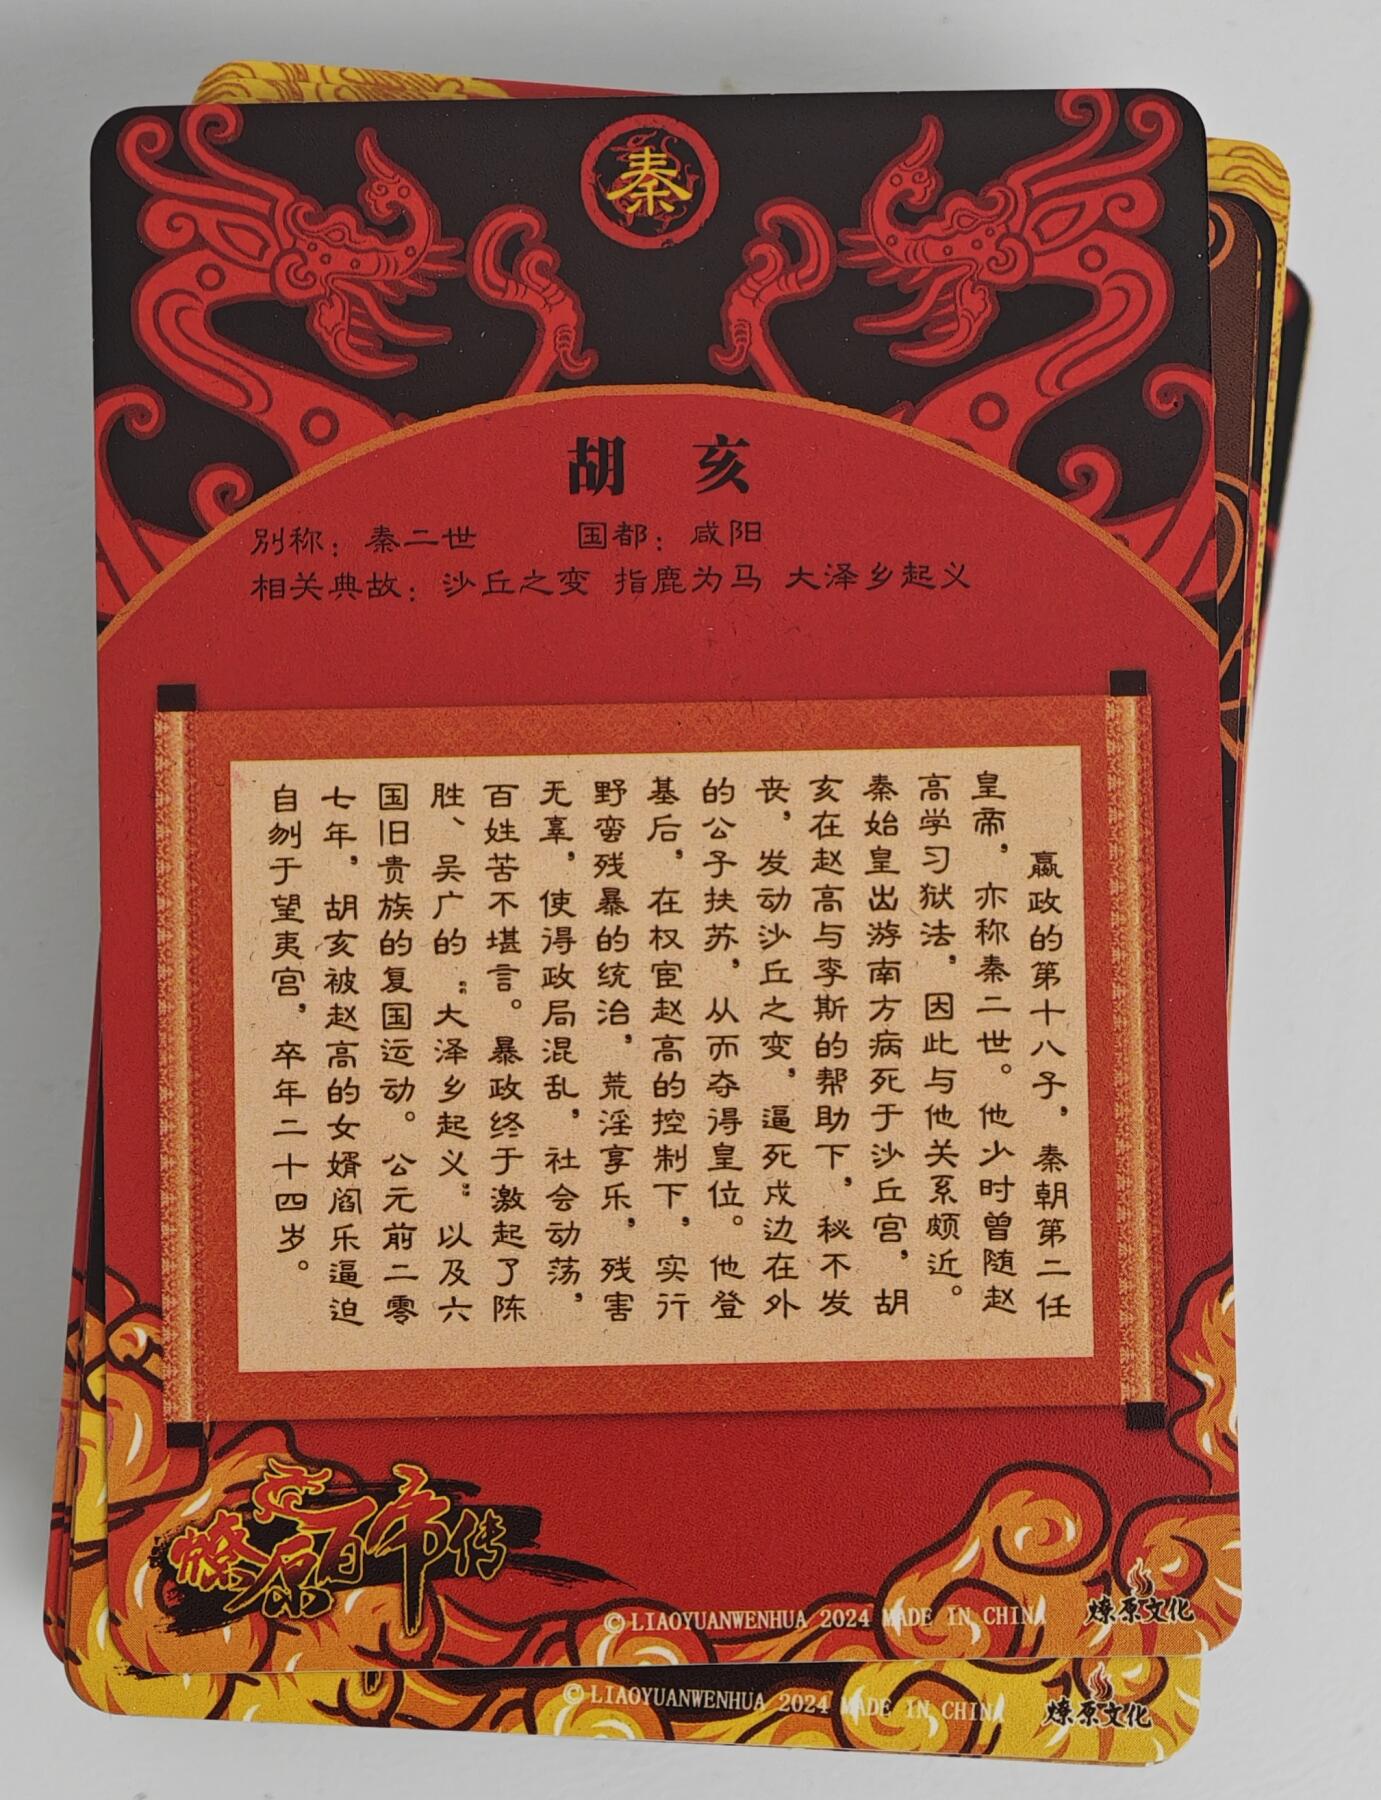 秦
胡 亥
別称：秦二世 国都：咸阳
相关典故：沙丘之变 指鹿为马 大泽乡起义
嬴政的第十八子，秦朝第二任
皇帝，亦称秦二世。他少时曾随赵
高学习狱法，因此与他关系颇近。
秦始皇出游南方病死于沙丘宫，胡
亥在赵高与李斯的帮助下，秘不发
丧，发动沙丘之变，逼死戍边在外
的公子扶苏，从而夺得皇位。他登
基后，在权宦赵高的控制下，实行
野蛮残暴的统治，荒淫享乐，残害
无辜，使得政局混乱，社会动荡，
百姓苦不堪言。暴政终于激起了陈
胜、吴广的“大泽乡起义”以及六
国旧贵族的复国运动。公元前二零
七年，胡亥被赵高的女婿阎乐逼迫
自刎于望夷宫，卒年二十四岁。
燎原百帝传
© LIAOYUANWENHUA 2024 MADE IN CHINA 燎原文化
© LIAOYUANWENHUA 2024 MADE IN CHINA 燎原文化